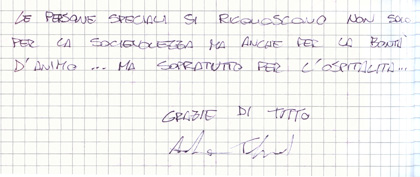 LE PERSONE SPECIALI SI RICONOSCONO NON SOLO
PER LA SOCIEVOLEZZA MA ANCHE PER LA BONTÀ
D'ANIMO ... MA SOPRATUTTO PER L'OSPITALITÀ...
GRAZIE DI TUTTO